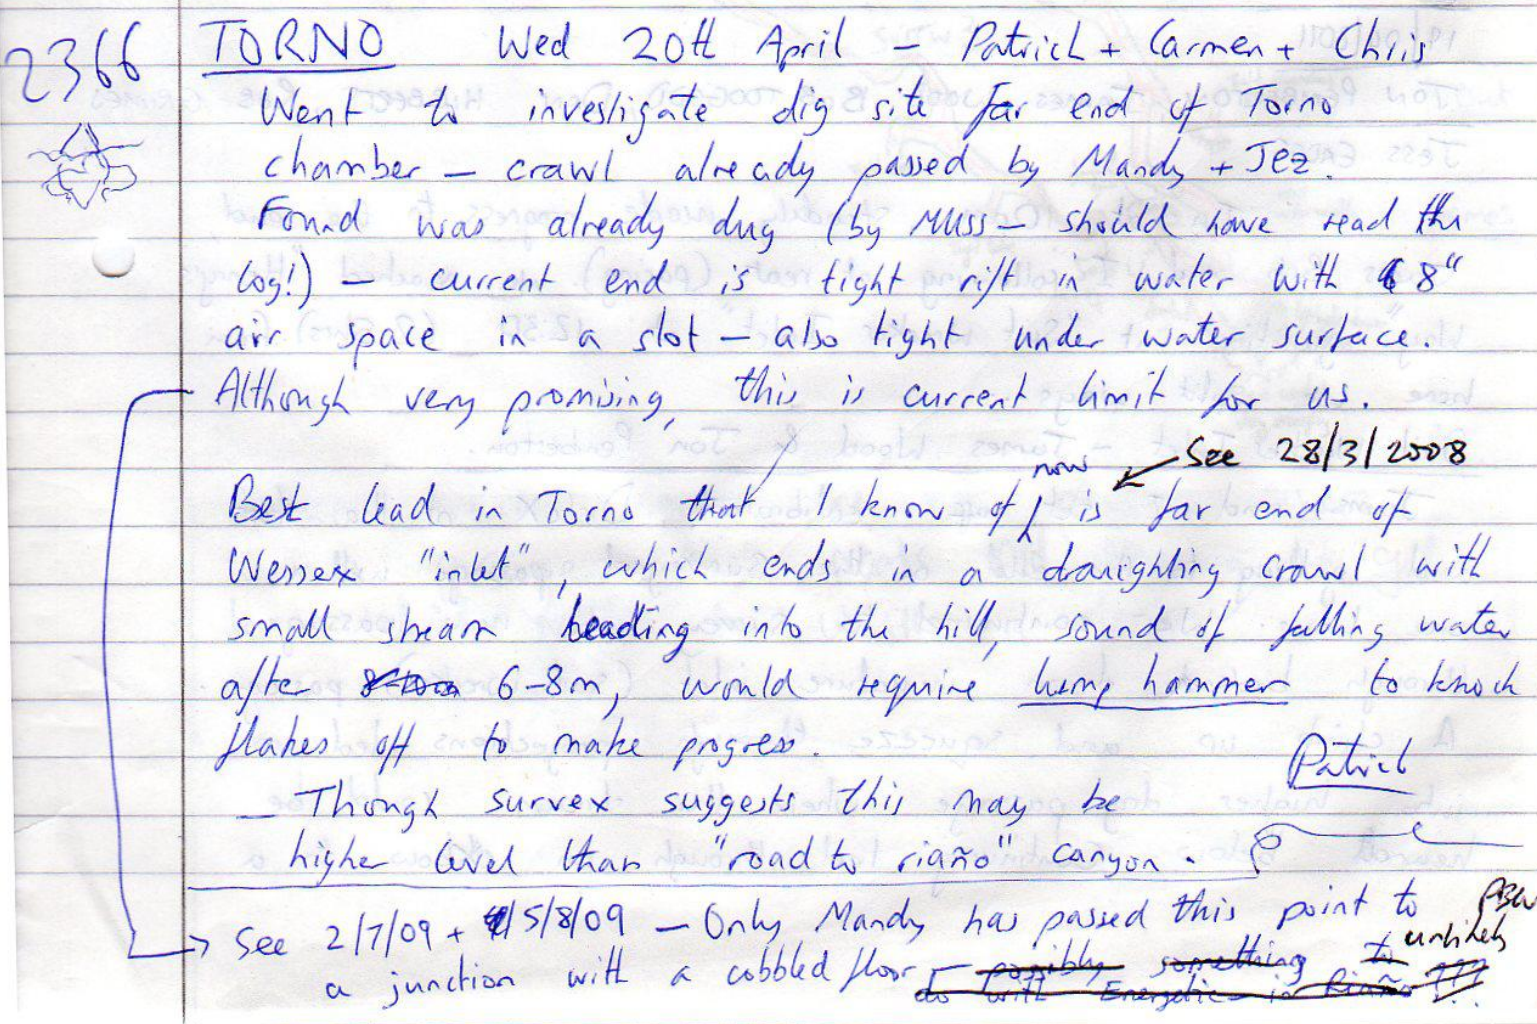 2366 TORNO Wed 20th April - Patrick + Carmen + Chris
Went to investigate dig site far end of Torno
chamber - crawl already passed by Mandy + Jez.
Found was already dug (by MUSS - should have read the
log!) - current end is tight rift in water with 8"
air space in a slot - also tight under water surface.
Although very promising, this is current limit for us.
now
See 28/3/2008
Best lead in Torno that I know of is far end of
Wessex "inlet", which ends in a draughting crawl with
small stream heading into the hill, sound of falling water
after 6-8m, would require lump hammer to knock
flakes off to make progress.
Patrick
- Though survex suggests this may be
higher level than "road to riaño" canyon.
See 2/7/09 + 5/8/09 - Only Mandy has passed this point to
a junction with a cobbled floor - possibly something to
unlikely
do with Energetic in Riaño???